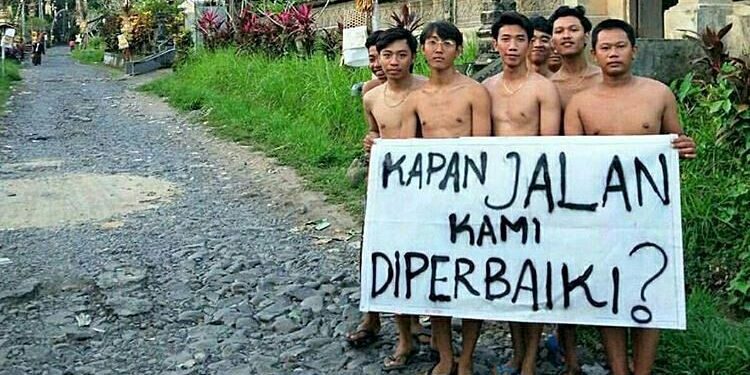 KAPAN JALAN
KAMI
DIPERBAIKI?